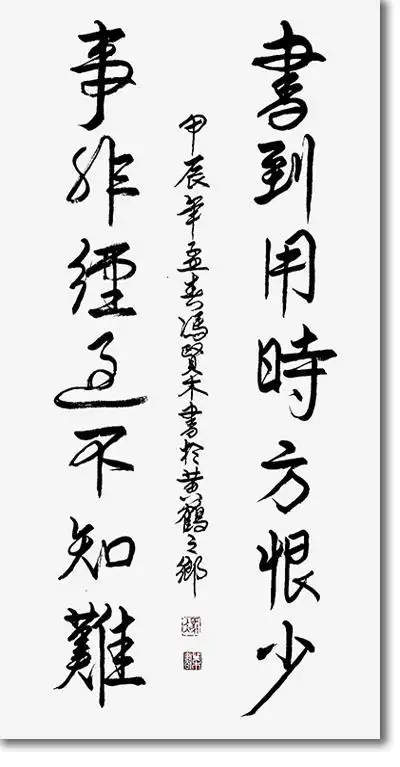 書到用時方恨少
事非經過不知難
甲辰年孟春馮賢木書於黄鶴之鄉